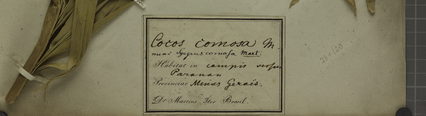 Cocos comosa M.
Mart.
Habitat in campis versus
Paranan
Provinciae Minas Geraës.
Dr Martius, Iter Brasil.